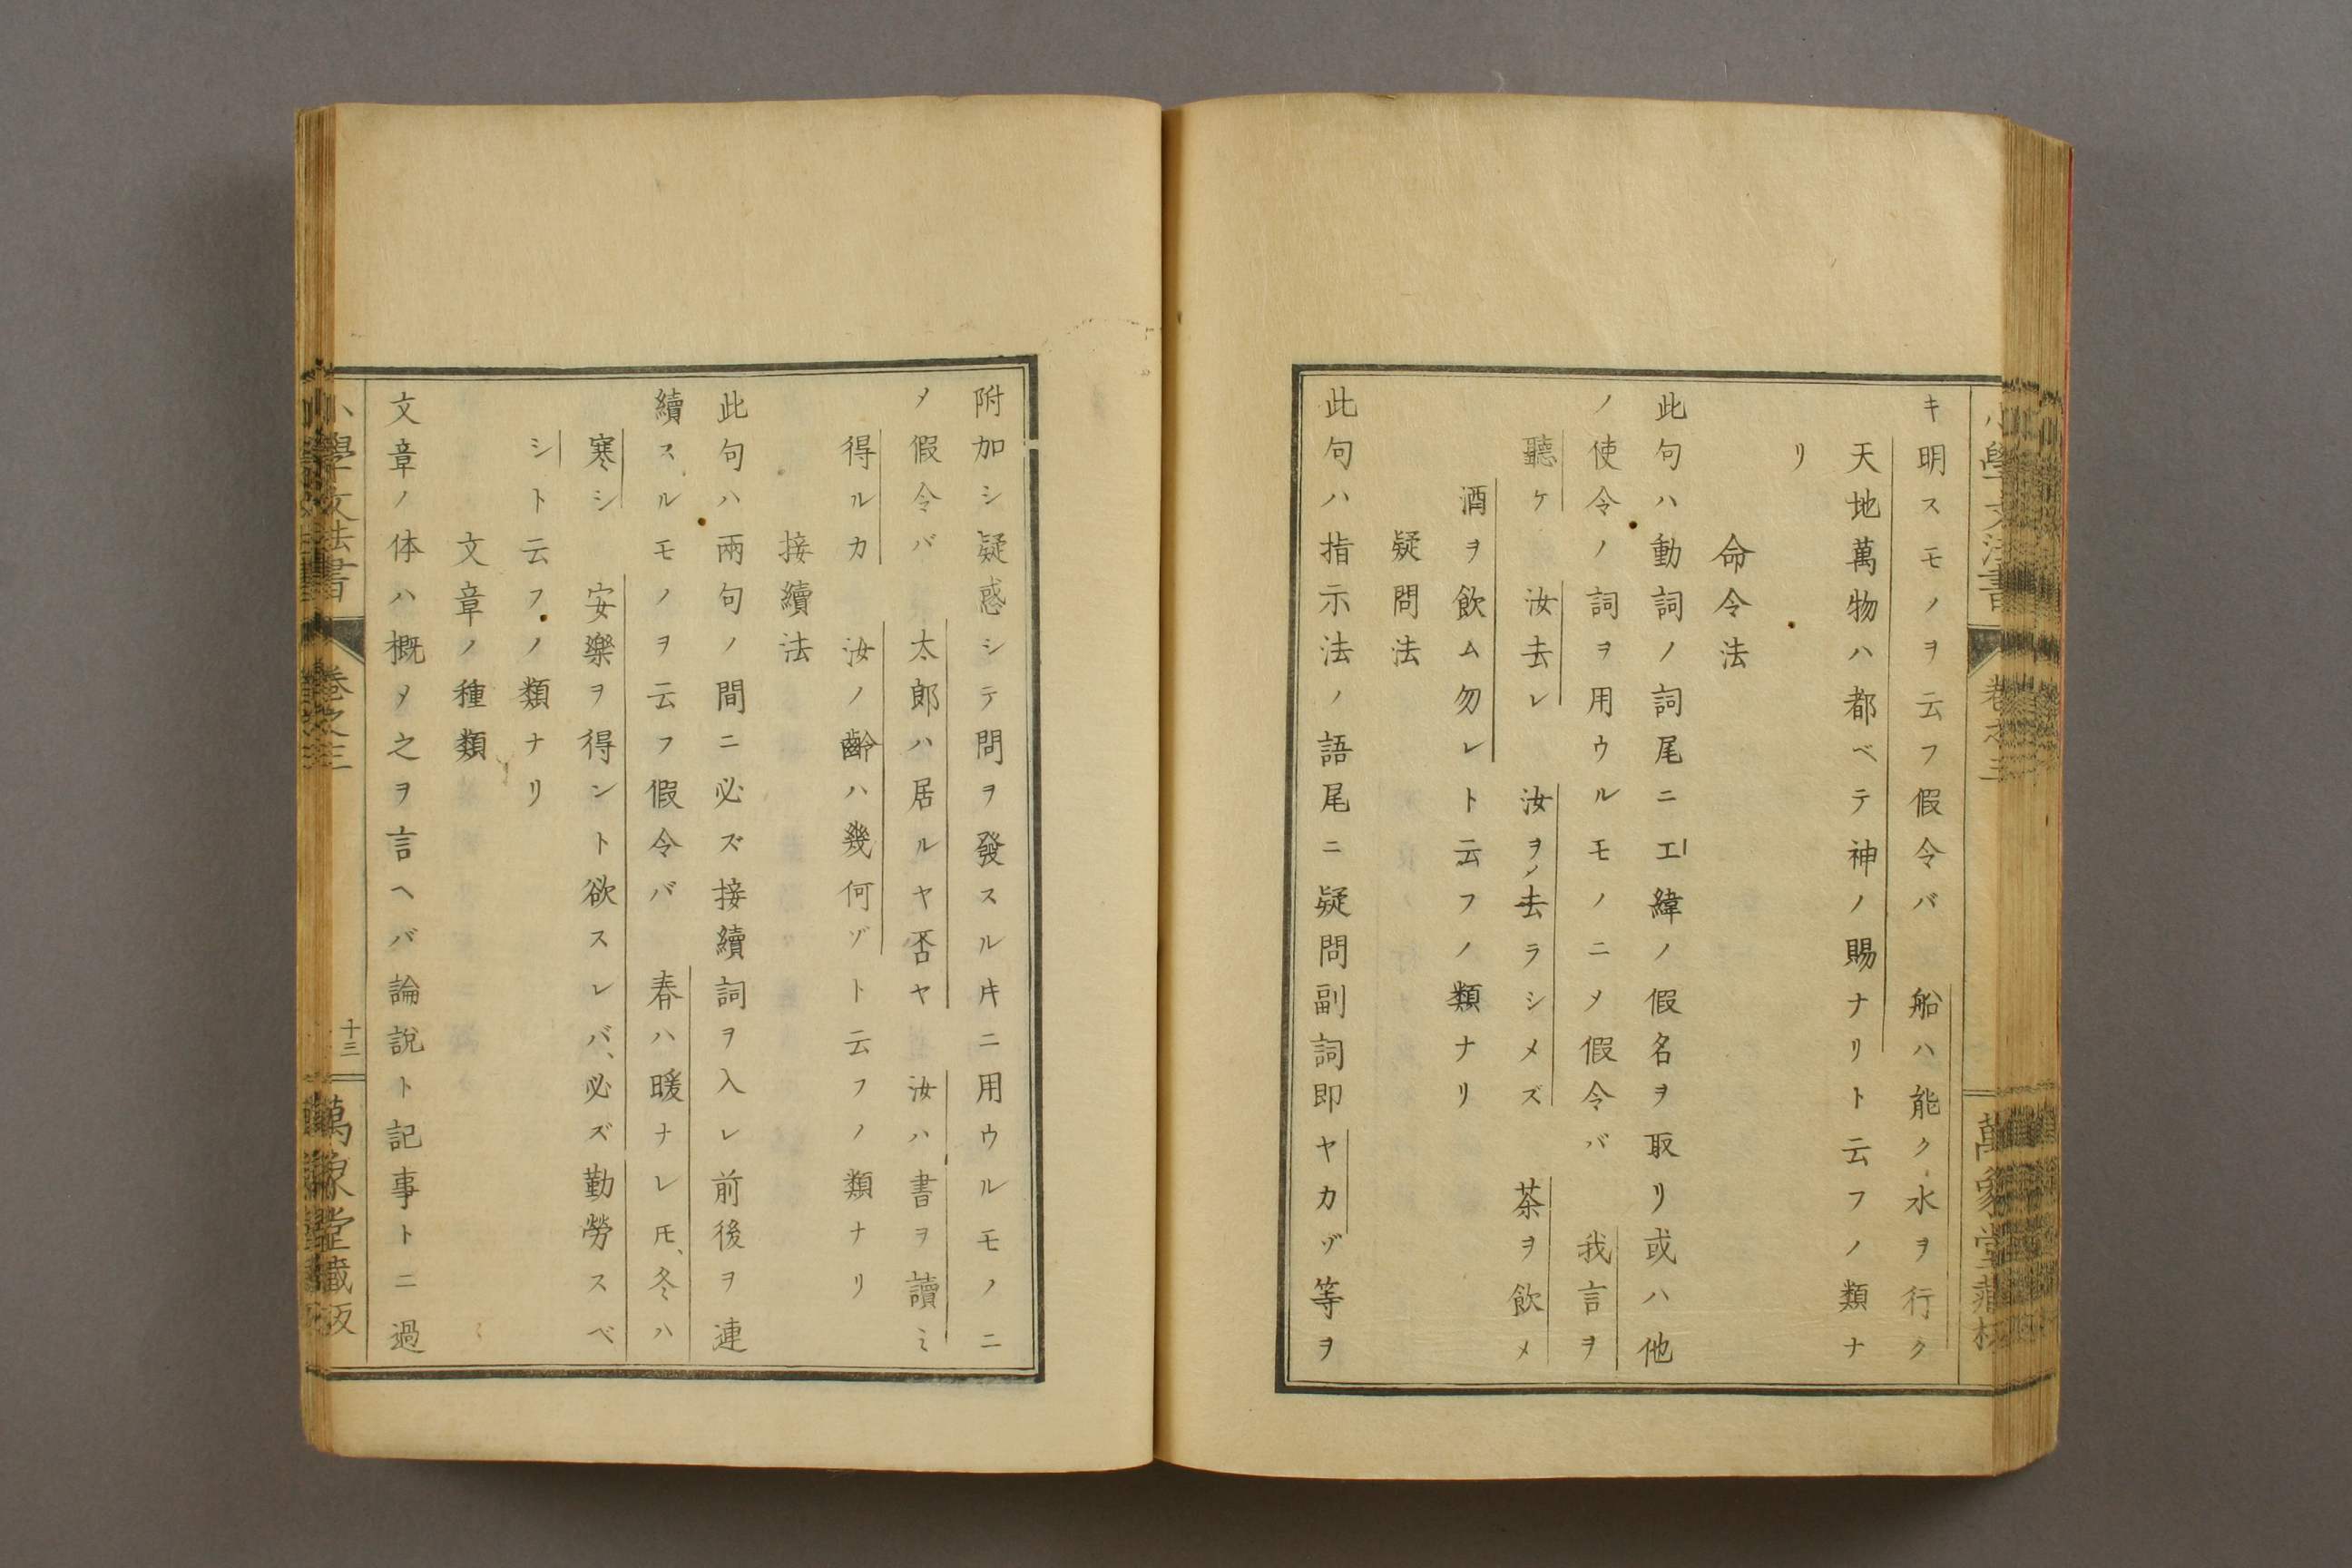 キ明スモノヲ云フ假令バ　船ハ能ク水ヲ行ク
天地萬物ハ都ベテ神ノ賜ナリト云フノ類ナ
リ
命令法
此句ハ動詞ノ詞尾ニエ緯ノ假名ヲ取リ或ハ他
ノ使令ノ詞ヲ用ウルモノニメ假令バ　我言ヲ
聽ケ　汝去レ　汝ヲノ去ラシメズ　茶ヲ飲メ
酒ヲ飲ム勿レト云フノ類ナリ
疑問法
此句ハ指示法ノ語尾ニ疑問副詞即ヤカゾ等ヲ
附加シ疑惑シテ問ヲ發スルキニ用ウルモノニ
メ假令バ　太郎ハ居ルヤ否ヤ　汝ハ書ヲ讀ミ
得ルカ　汝ノ齡ハ幾何ゾト云フノ類ナリ
接續法
此句ハ兩句ノ間ニ必ズ接續詞ヲ入レ前後ヲ連
續スルモノヲ云フ假令バ　春ハ暖ナレ𪜈、冬ハ
寒シ　安樂ヲ得ント欲スレバ、必ズ勤勞スベ
シト云フノ類ナリ
文章ノ種類
文章ノ体ハ概メ之ヲ言ヘバ論説ト記事トニ過
小學文法書
卷之三
十三
萬象堂藏版